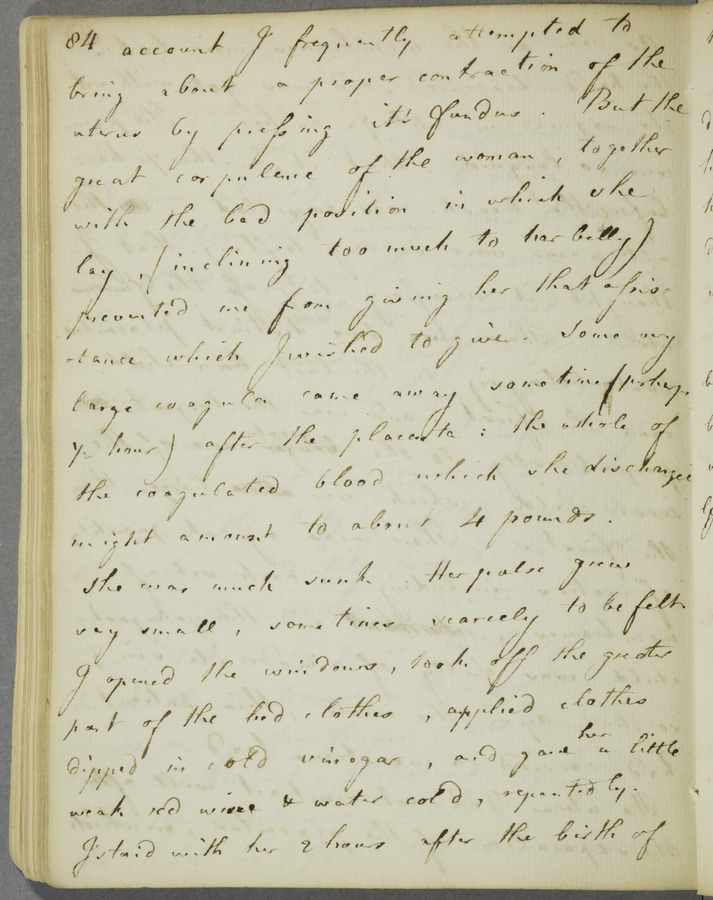 84 account I frequently attempted to
bring about a proper contraction of the
uterus by pressing it's fundus. But the
great corpulence of the woman, together
with the bad position in which she
lay, (inclining too much to her belly)
prevented me from giving her that assis-
-tance which I wished to give. Some very
large coagula came away sometime (perhaps
½ hour) after the placenta: the whole of
the coagulated blood which she discharged
might amount to about 4 pounds.
She was much sunk. Her pulse grew
very small, sometimes scarcely to be felt.
I opened the windows, took off the greater
part of the bed clothes, applied clothes
dipped in cold vinegar, and gave her a little
weak red wine & water cold, repeatedly.
I staid with her 2 hours after the birth of